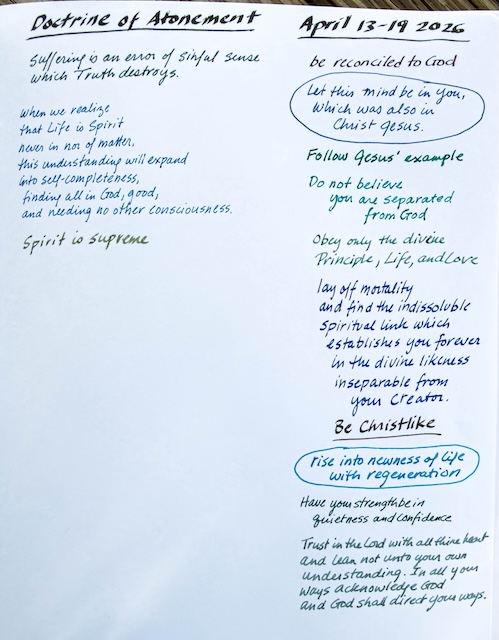 Doctrine of Atonement
Suffering is an error of sinful sense
which Truth destroys.
When we realize
that Life is Spirit
never in nor of matter,
this understanding will expand
into self-completeness,
finding all in God, good,
and needing no other consciousness.
Spirit is supreme
April 13-19 2026
be reconciled to God
Let this mind be in you,
which was also in
Christ Jesus.
Follow Jesus' example
Do not believe
you are separated
from God
Obey only the divine
Principle, Life, and Love
lay off mortality
and find the indissoluble
spiritual link which
establishes you forever
in the divine likeness
inseparable from
your creator.
Be Christlike
rise into newness of life
with regeneration
Have your strength be in
quietness and confidence
Trust in the Lord with all thine heart
and lean not unto your own
understanding. In all your
ways acknowledge God
and God shall direct your ways.